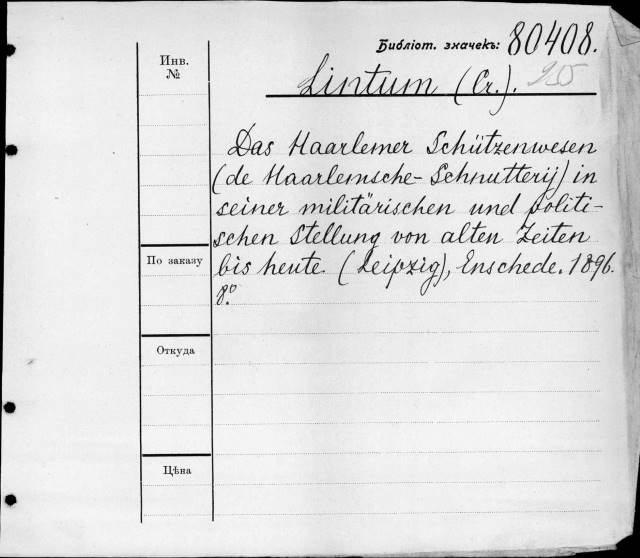 Библіот. значекъ: 80408.
Инв.
№
Lintum (Cr.).
Das Haarlemer Schützenwesen
(de Haarlemsche-Schnutterij) in
seiner militärischen und politi-
schen Stellung von alten Zeiten
По заказу
bis heute. (Leipzig), Enschede. 1896.
8.º
Откуда
Цѣна